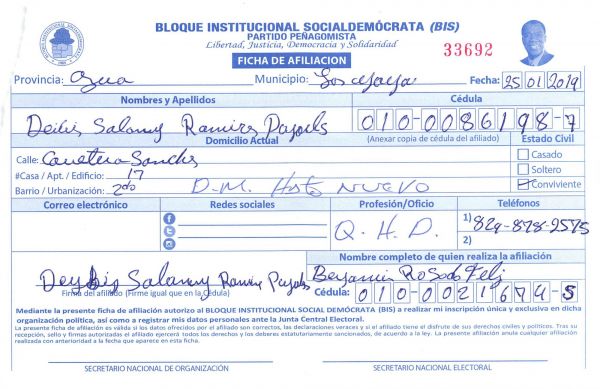 BLOQUE INSTITUCIONAL SOCIALDEMÓCRATA (BIS)
PARTIDO PEÑAGOMISTA
Libertad, Justicia, Democracia y Solidaridad
FICHA DE AFILIACION
33692
Provincia: Azua Municipio: Los Fecha: 25 01 2019
Nombres y Apellidos Cédula
Salanny Ramires 010-0086198-7
Domicilio Actual (Anexar copia de cédula del afiliado) Estado Civil
Calle: Carretera Sanches Casado
#Casa / Apt. / Edificio: 17 Soltero
Barrio / Urbanización: 2do D.M. Hato NUEVO Conviviente
Correo electrónico Redes sociales Profesión/Oficio Teléfonos
Q.H.D. 1) 829-878-2575
2)
Nombre completo de quien realiza la afiliación
Salanny Ramires Benjamin Rosado Feliz
Firma del afiliado (Firme igual que en la Cédula) Cédula: 010-0021674-5
Mediante la presente ficha de afiliación autorizo al BLOQUE INSTITUCIONAL SOCIAL DEMÓCRATA (BIS) a realizar mi inscripción única y exclusiva en dicha
organización política, así como a registrar mis datos personales ante la Junta Central Electoral.
La presente ficha de afiliación es válida si los datos ofrecidos por el afiliado son correctos, las declaraciones veraces y si el afiliado tiene el disfrute de sus derechos civiles y políticos. Tras su
recepción, sello y firmas autorizadas el afiliado ejercerá todos los derechos y los deberes estatutariamente sancionados, de acuerdo a la ley. La presente afiliación anula cualquier afiliación
realizada con anterioridad a la fecha que aparece en esta ficha.
SECRETARIO NACIONAL DE ORGANIZACIÓN SECRETARIO NACIONAL ELECTORAL